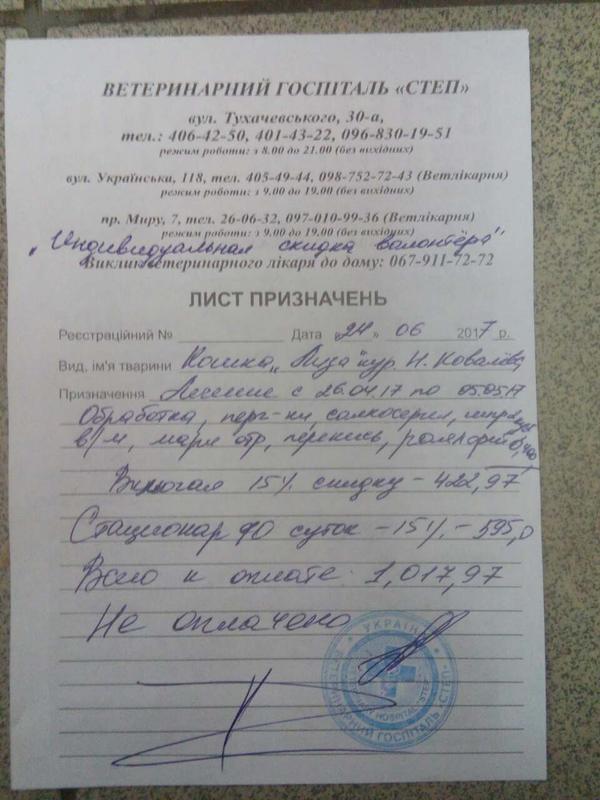 ВЕТЕРИНАРНИЙ ГОСПІТАЛЬ «СТЕП»
вул. Тухачевського, 30-а,
тел.: 406-42-50, 401-43-22, 096-830-19-51
режим роботи: з 8.00 до 21.00 (без вихідних)
вул. Українська, 118, тел. 405-49-44, 098-752-72-43 (Ветлікарня)
режим роботи: з 9.00 до 19.00 (без вихідних)
пр. Миру, 7, тел. 26-06-32, 097-010-99-36 (Ветлікарня)
режим роботи: з 9.00 до 19.00 (без вихідних)
„Индивидуальная скидка волонтёра"
Виклик ветеринарного лікаря до дому: 067-911-72-72
ЛИСТ ПРИЗНАЧЕНЬ
Реєстраційний № Дата «24» 06 2017 р.
Вид, ім'я тварини Кошка „Лиза" кур. Н. Ковалёва
Призначення Лечение с 26.04.17 по 05.05.17
Обработка, солкосерил, шприцы
в/м, марл отр, перекись,
Включая 15% скидку - 422,97
Стационар 10 суток - 15% - 595,0
Всего к оплате 1,017,97
Не оплачено
УКРАЇНА
ВЕТЕРИНАРНИЙ ГОСПІТАЛЬ «СТЕП»